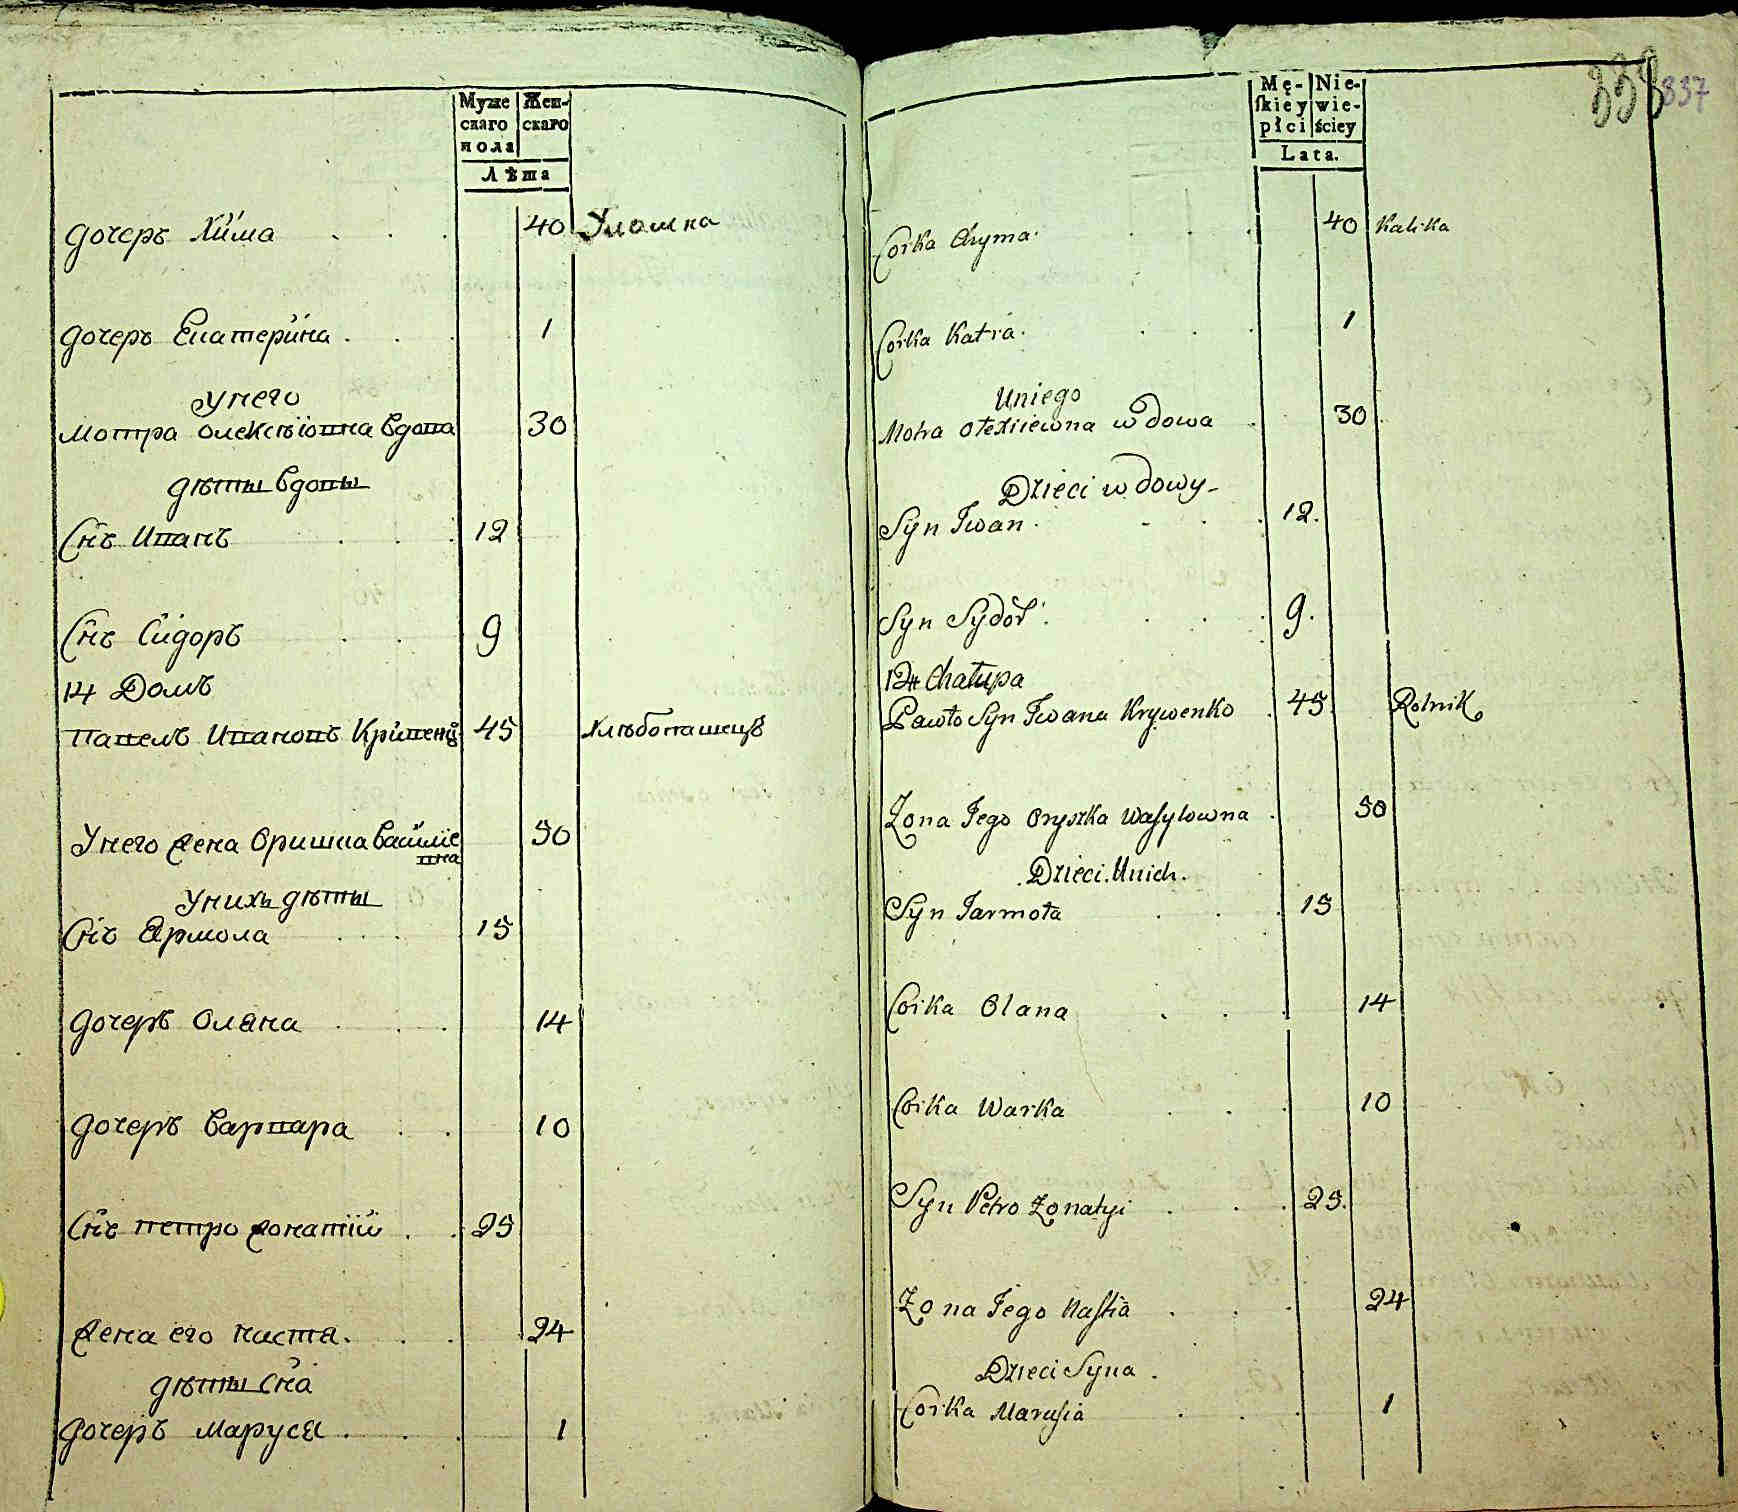 Муже
скаго
пола
Жен-
скаго
Лѣта
дочеръ Хима 40
дочеръ Екатерина 1
у него
Мотра Олексѣювна вдова 30
дѣты вдовы
Снъ Иванъ 12
Снъ Сидоръ 9
14 Домъ
Павелъ Ивановъ 45 хлѣбопашецъ
У него жена Оришка Василіе
вна 50
У нихъ дѣты
Снъ Ярмола 15
дочеръ Оляна 14
дочеръ Варвара 10
Снъ Петро жонатій 25
жена его Настя 24
дѣты Сна
дочеръ Маруся 1
Mę-
skiey
płci
Nie-
wie-
ściey
Lata.
837
Corka Chyma 40 Kalika
Corka Katra 1
U niego
Motra Olexiiewna wdowa 30
Dzieci wdowy
Syn Iwan 12.
Syn Sydor 9.
14 Chałupa
Pawło Syn Iwana Krywenko 45 Rolnik
Zona Iego Oryszka Wasylowna 50
Dzieci Unich.
Syn Iarmoła 15
Corka Olana 14
Corka Warka 10
Syn Petro Zonatyi 25.
Zona Iego Nastia 24
Dzieci Syna.
Corka Marusia 1